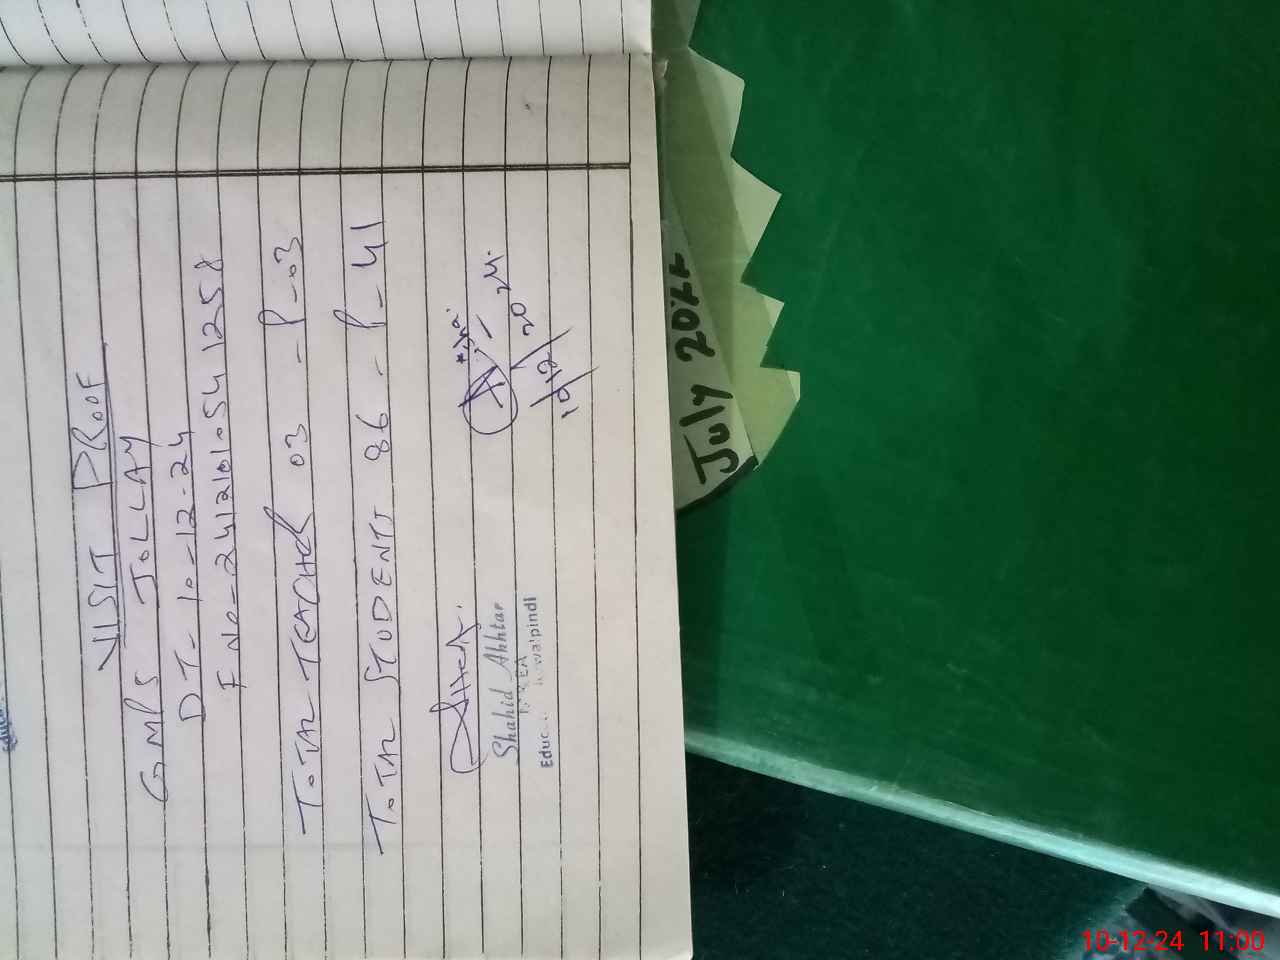 VISIT PROOF
GMPS JOLLAY
DT- 10-12-24
F No-241210105411258
TOTAL TEACHER 03 - P-03
TOTAL STUDENTS 86 - P-41
10/12/2024.
Shahid Akhtar
Educ
walpindi
July 2022
10-12-24 11:00